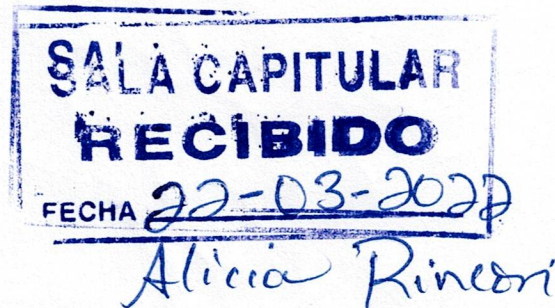 SALA CAPITULAR
RECIBIDO
FECHA 22-03-2022
Alicia Rincon